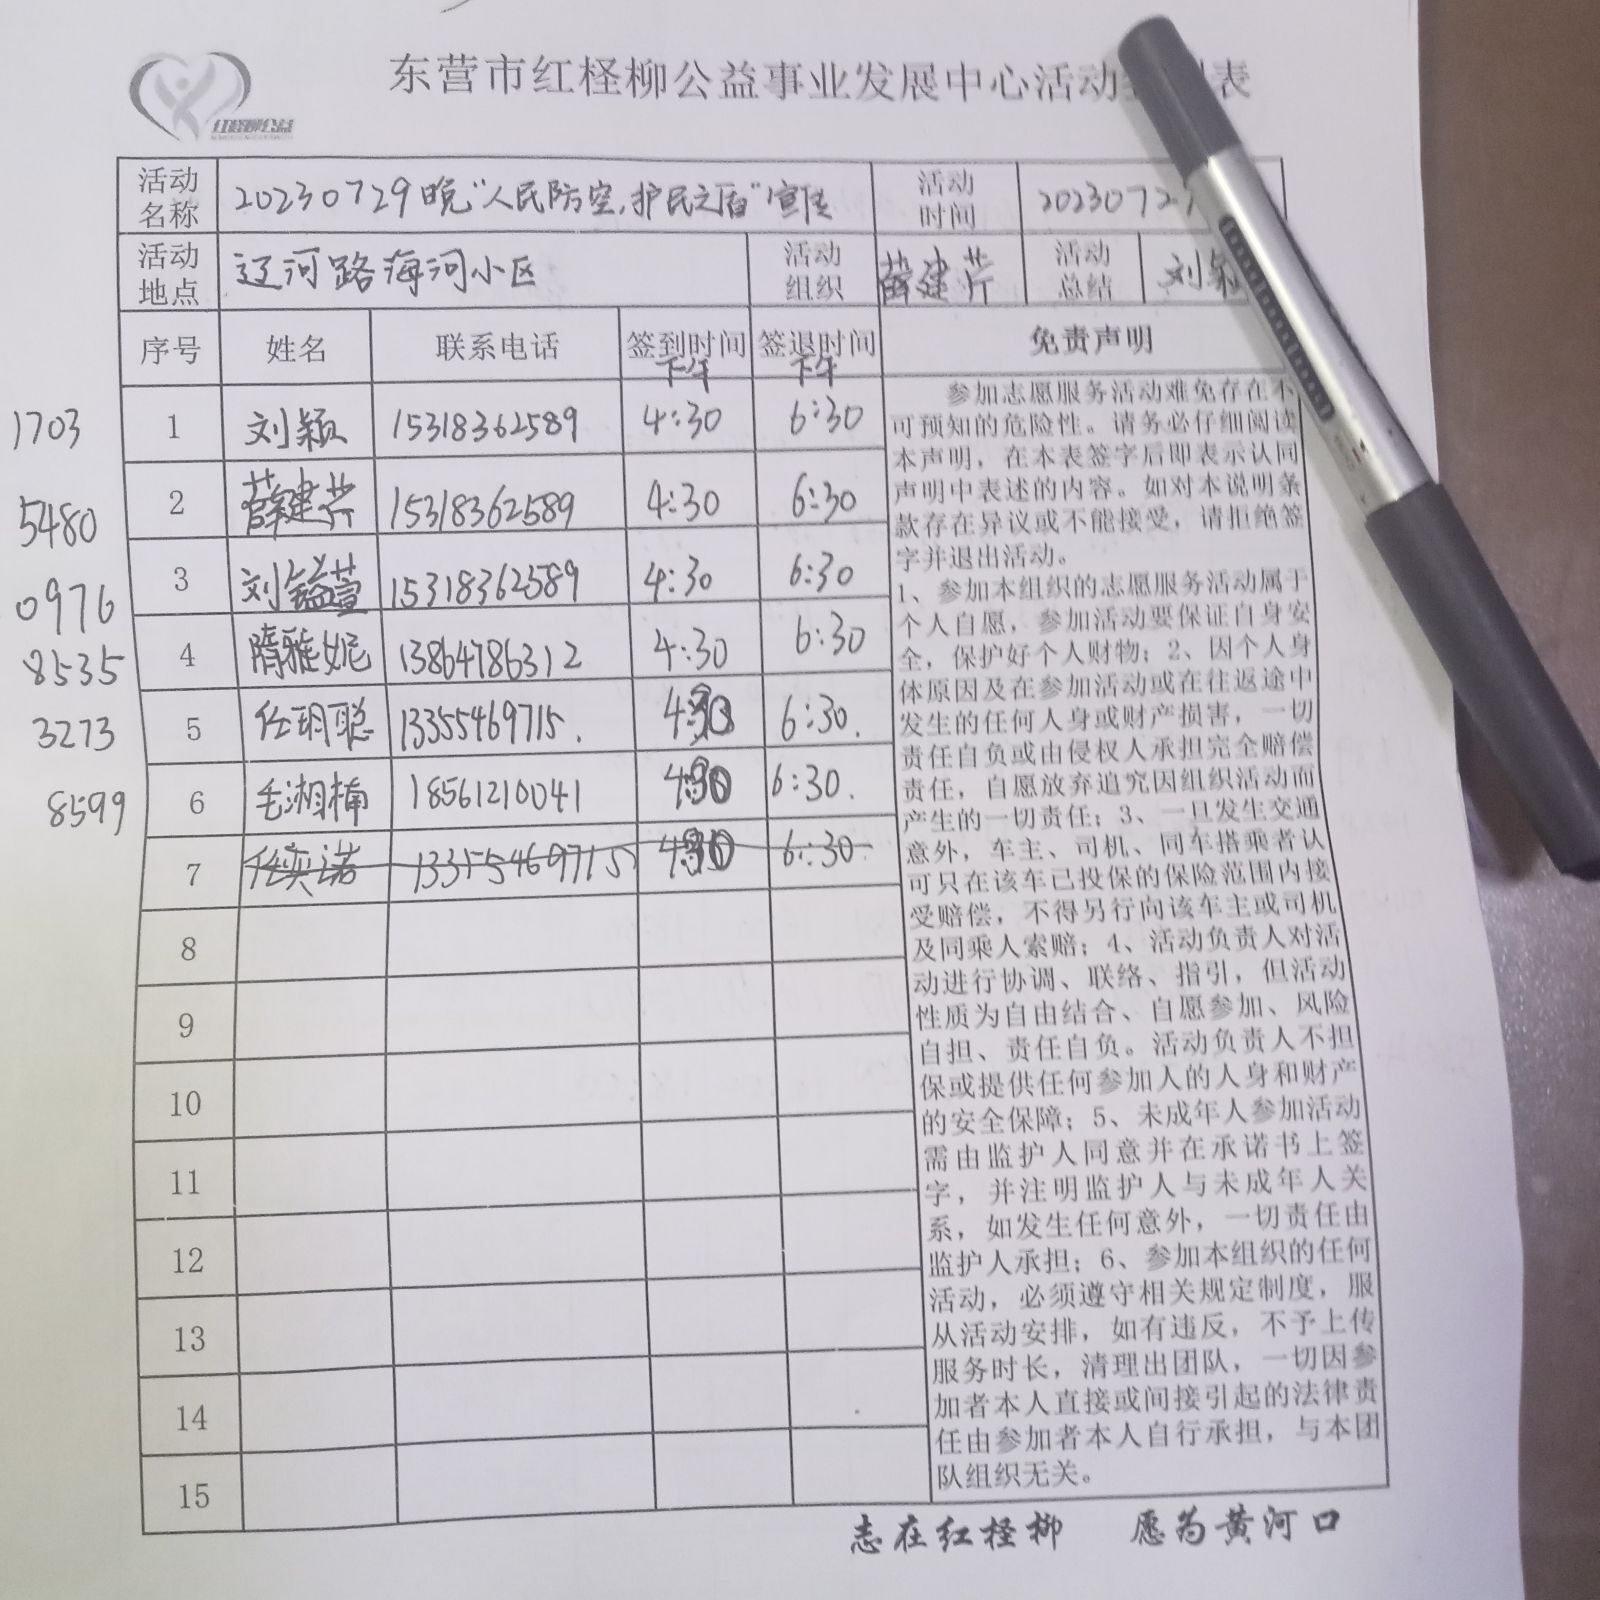 红柽柳公益
东营市红柽柳公益事业发展中心活动 表
活动名称 20230729晚“人民防空,护民之盾”宣传 活动时间 2023072
活动地点 辽河路海河小区 活动组织 薛建芹 活动总结 刘颖
序号 姓名 联系电话 签到时间 下午 签退时间 下午 免责声明
1703 1 刘颖 15318362589 4:30 6:30
5480 2 薛建芹 15318362589 4:30 6:30
0976 3 刘镒萱 15318362589 4:30 6:30
8535 4 隋雅妮 13864786312 4:30 6:30
3273 5 任玥聪 13355469715. 4:30 6:30.
8599 6 毛湘楠 18561210041 4:30 6:30.
7 任奕诺 13355469715 4:30 6:30.
8
9
10
11
12
13
14
15
参加志愿服务活动难免存在不
可预知的危险性。请务必仔细阅读
本声明，在本表签字后即表示认同
声明中表述的内容。如对本说明条
款存在异议或不能接受，请拒绝签
字并退出活动。
1、参加本组织的志愿服务活动属于
个人自愿，参加活动要保证自身安
全，保护好个人财物；2、因个人身
体原因及在参加活动或在往返途中
发生的任何人身或财产损害，一切
责任自负或由侵权人承担完全赔偿
责任，自愿放弃追究因组织活动而
产生的一切责任；3、一旦发生交通
意外，车主、司机、同车搭乘者认
可只在该车已投保的保险范围内接
受赔偿，不得另行向该车主或司机
及同乘人索赔；4、活动负责人对活
动进行协调、联络、指引，但活动
性质为自由结合、自愿参加、风险
自担、责任自负。活动负责人不担
保或提供任何参加人的人身和财产
的安全保障；5、未成年人参加活动
需由监护人同意并在承诺书上签
字，并注明监护人与未成年人关
系，如发生任何意外，一切责任由
监护人承担；6、参加本组织的任何
活动，必须遵守相关规定制度，服
从活动安排，如有违反，不予上传
服务时长，清理出团队，一切因参
加者本人直接或间接引起的法律责
任由参加者本人自行承担，与本团
队组织无关。
志在红柽柳 愿为黄河口